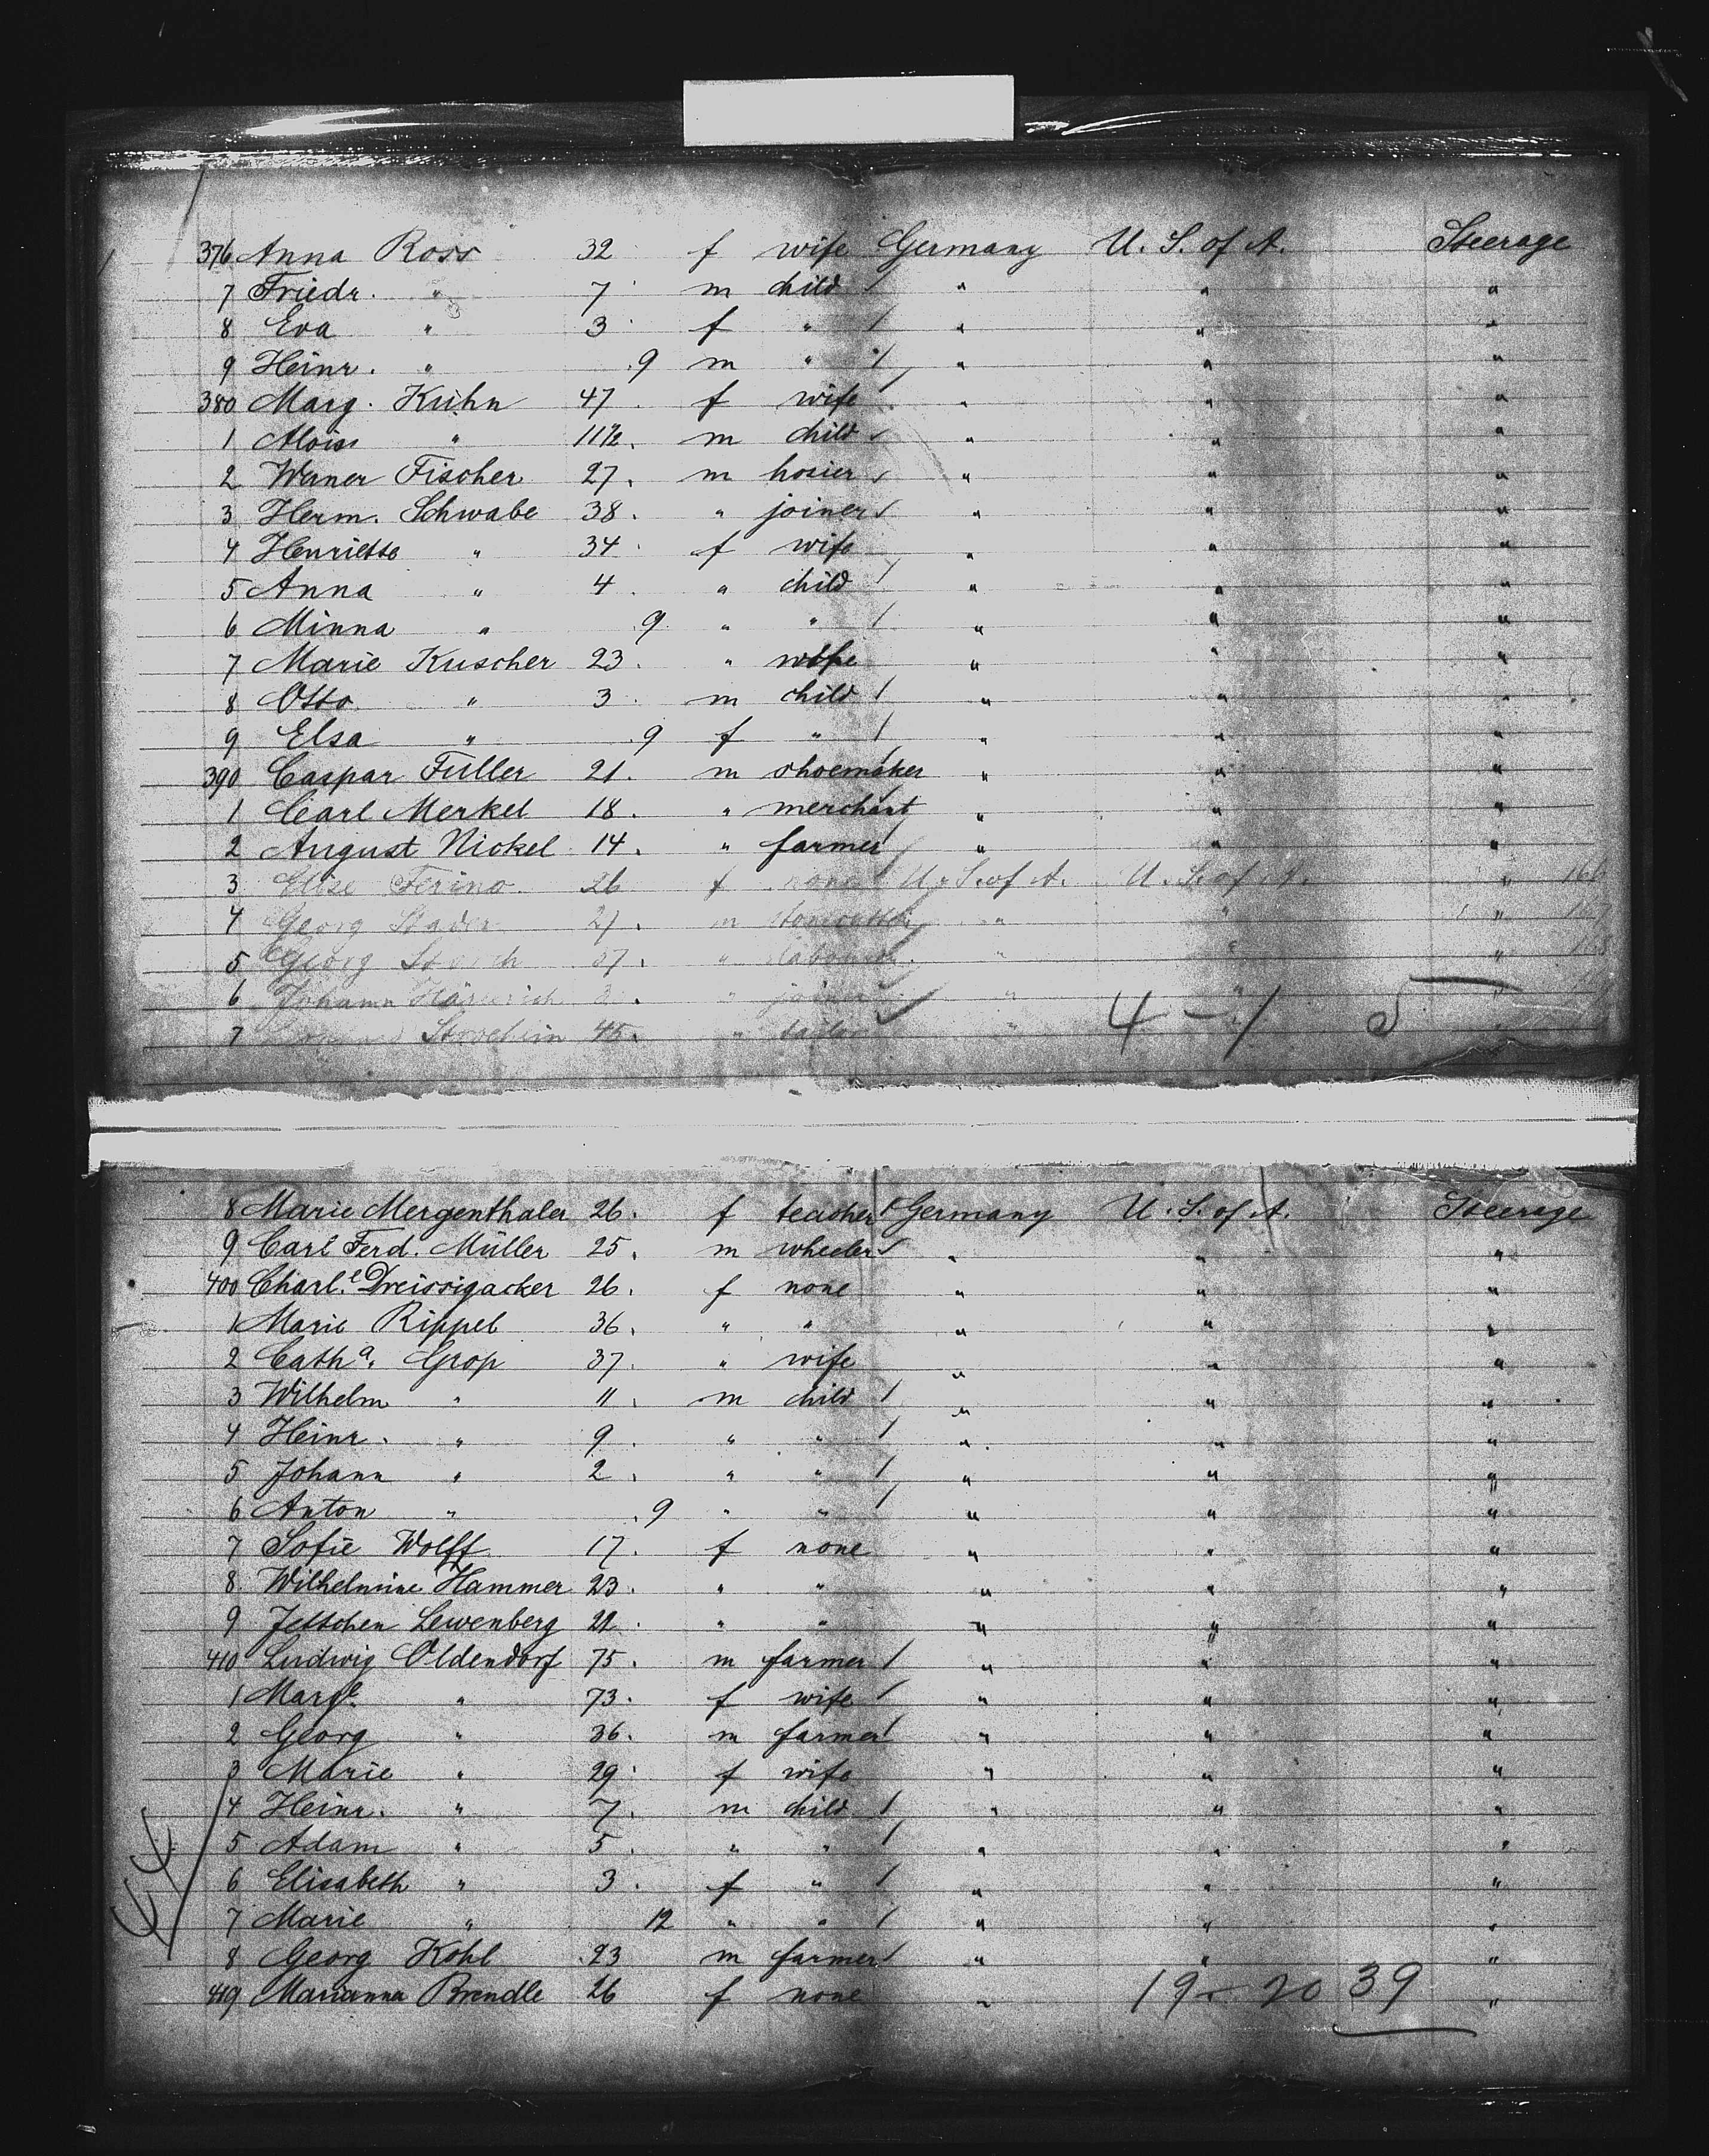 376 Anna Ross 32 f wife Germany U. S. of A. Steerage
7 Friedr. " 7 m child " " "
8 Eva " 3 f " " " "
9 Heinr. " 9 m " " " "
380 Marg. Kuhn 47 f wife " " "
1 Alois " 11½ m child " " "
2 Werner Fischer 27. m hosier " " "
3 Herm. Schwabe 38. " joiner " " "
4 Henriette " 34 f wife " " "
5 Anna " 4. " child " " "
6 Minna " 9. " " " " "
7 Marie Kuscher 23. " wife " " "
8 Otto " 3. m child " " "
9 Elsa " 9 f " " " "
390 Caspar Füller 21. m shoemaker " " "
1 Carl Merkel 18. " merchant " " "
2 August Nickel 14. " farmer " " "
3 Elise Ferino 26 f none U. S. of A. U. S. of A. " 166
4 Georg 21. m " " "
5 Georg 37. " " " "
6 Johann " joiner " " "
7 45. " tailor "
4 - 1 5
8 Marie Mergenthaler 26. f teacher Germany U. S. of A. Steerage
9 Carl Ferd. Müller 25. m wheeler " " "
400 Charl.e Dreissigacker 26. f none " " "
1 Marie Rippel 36. " " " " "
2 Catha. Grop 37. " wife " " "
3 Wilhelm " 11. m child " " "
4 Heinr. " 9. " " " " "
5 Johann " 2. " " " " "
6 Anton " .9 " " " " "
7 Sofie Wolff 17. f none " " "
8. Wilhelmine Hammer 23. " " " " "
9 Jettchen Lewenberg 21. " " " " "
410 Ludwig Oldendorf 75. m farmer " " "
1 Marge. " 73. f wife " " "
2 Georg " 36. m farmer " " "
3 Marie " 29. f wife " " "
4 Heinr. " 7. m child " " "
5 Adam " 5. " " " " "
6 Elisabeth " 3. f " " " "
7 Marie " 12 " " " " "
8 Georg Kohl 23 m farmer " " "
419 Marianna Brendle 26 f none " "
19 - 20 39